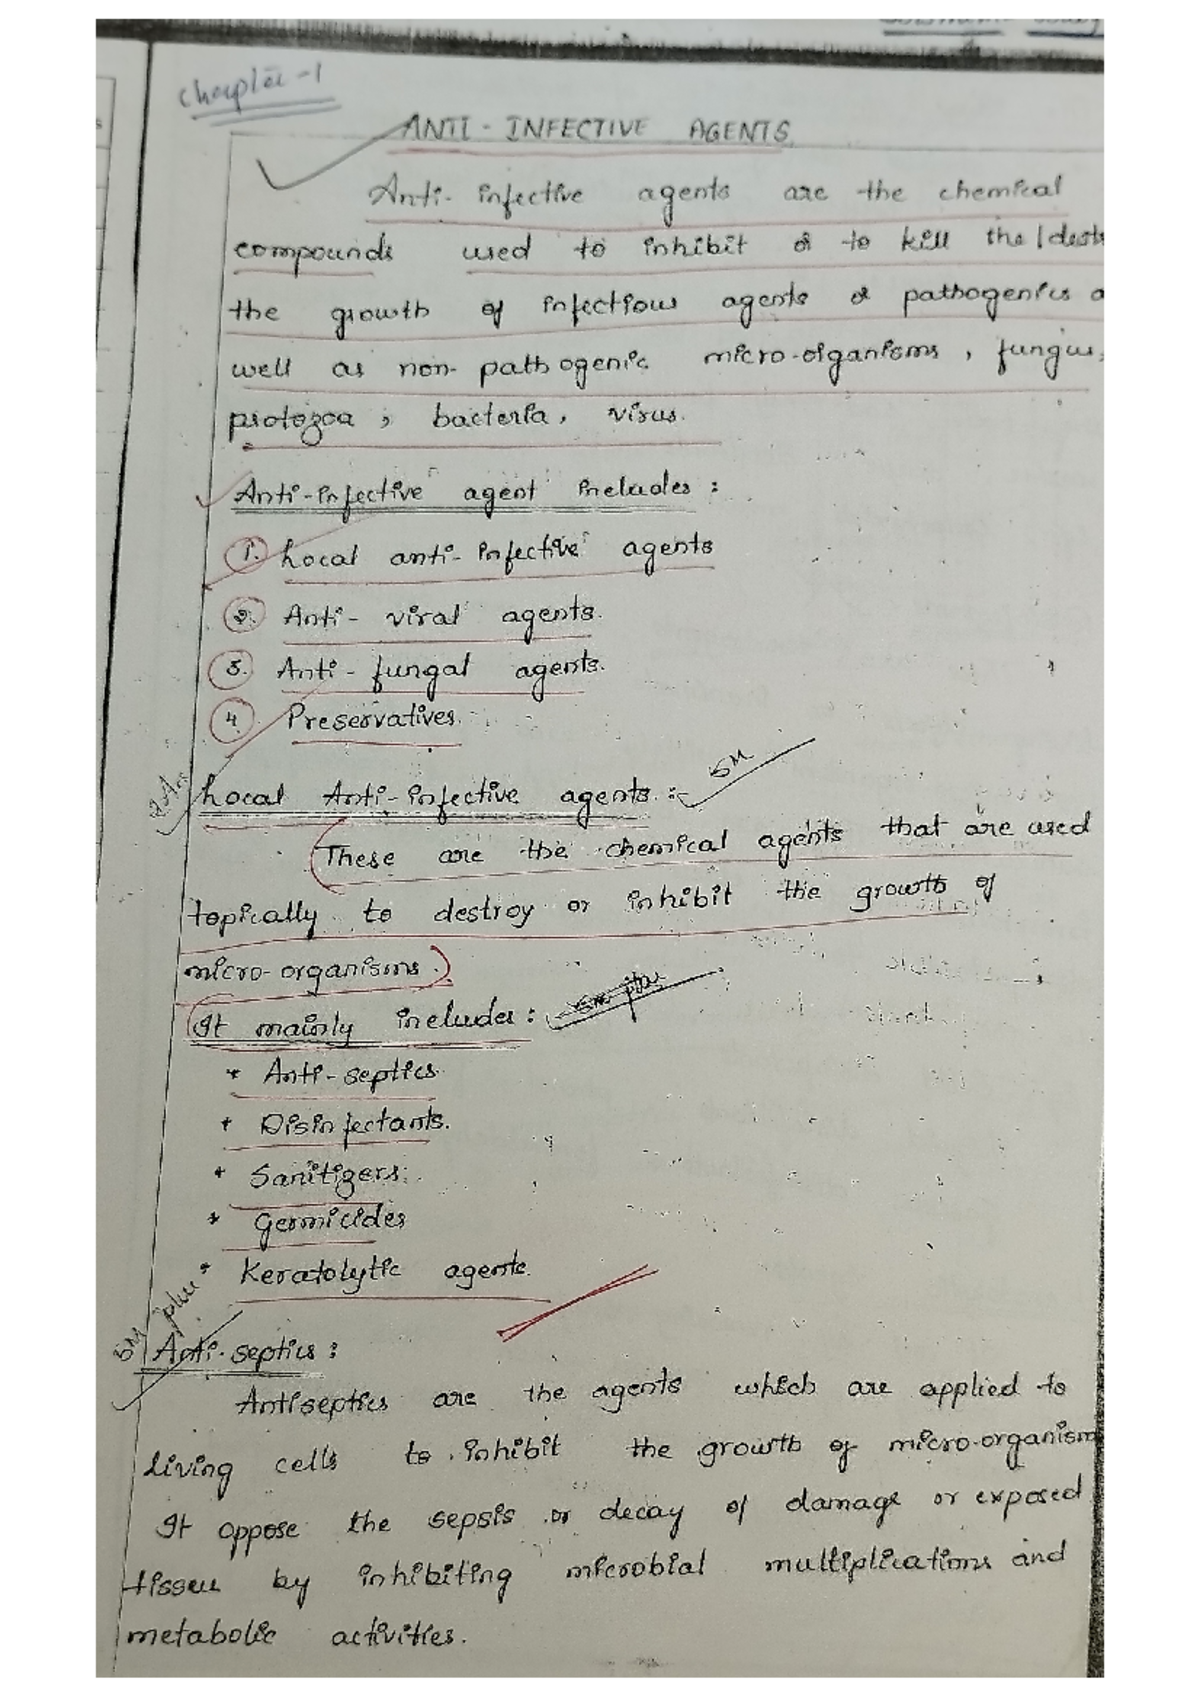 Chapter-1
ANTI-INFECTIVE AGENTS.
Anti-infective agents are the chemical
compounds used to inhibit or to kill the /dest
the growth of infectious agents or pathogenics a
well as non-pathogenic micro-organisms, fungus,
protozoa, bacteria, virus.
Anti-infective agent includes:
1. Local anti-infective agents
2. Anti-viral agents.
3. Anti-fungal agents.
4. Preservatives.
5M
Local Anti-infective agents :-
These are the chemical agents that are used
topically to destroy or inhibit the growth of
micro-organisms.
It mainly includes:
* Anti-septics
* Disinfectants.
* Sanitizers.
* Germicides
* Keratolytic agents.
5M plus
Anti-septics:
Antiseptics are the agents which are applied to
living cells to inhibit the growth of micro-organism
It oppose the sepsis or decay of damage or exposed
tissue by inhibiting microbial multiplications and
metabolic activities.